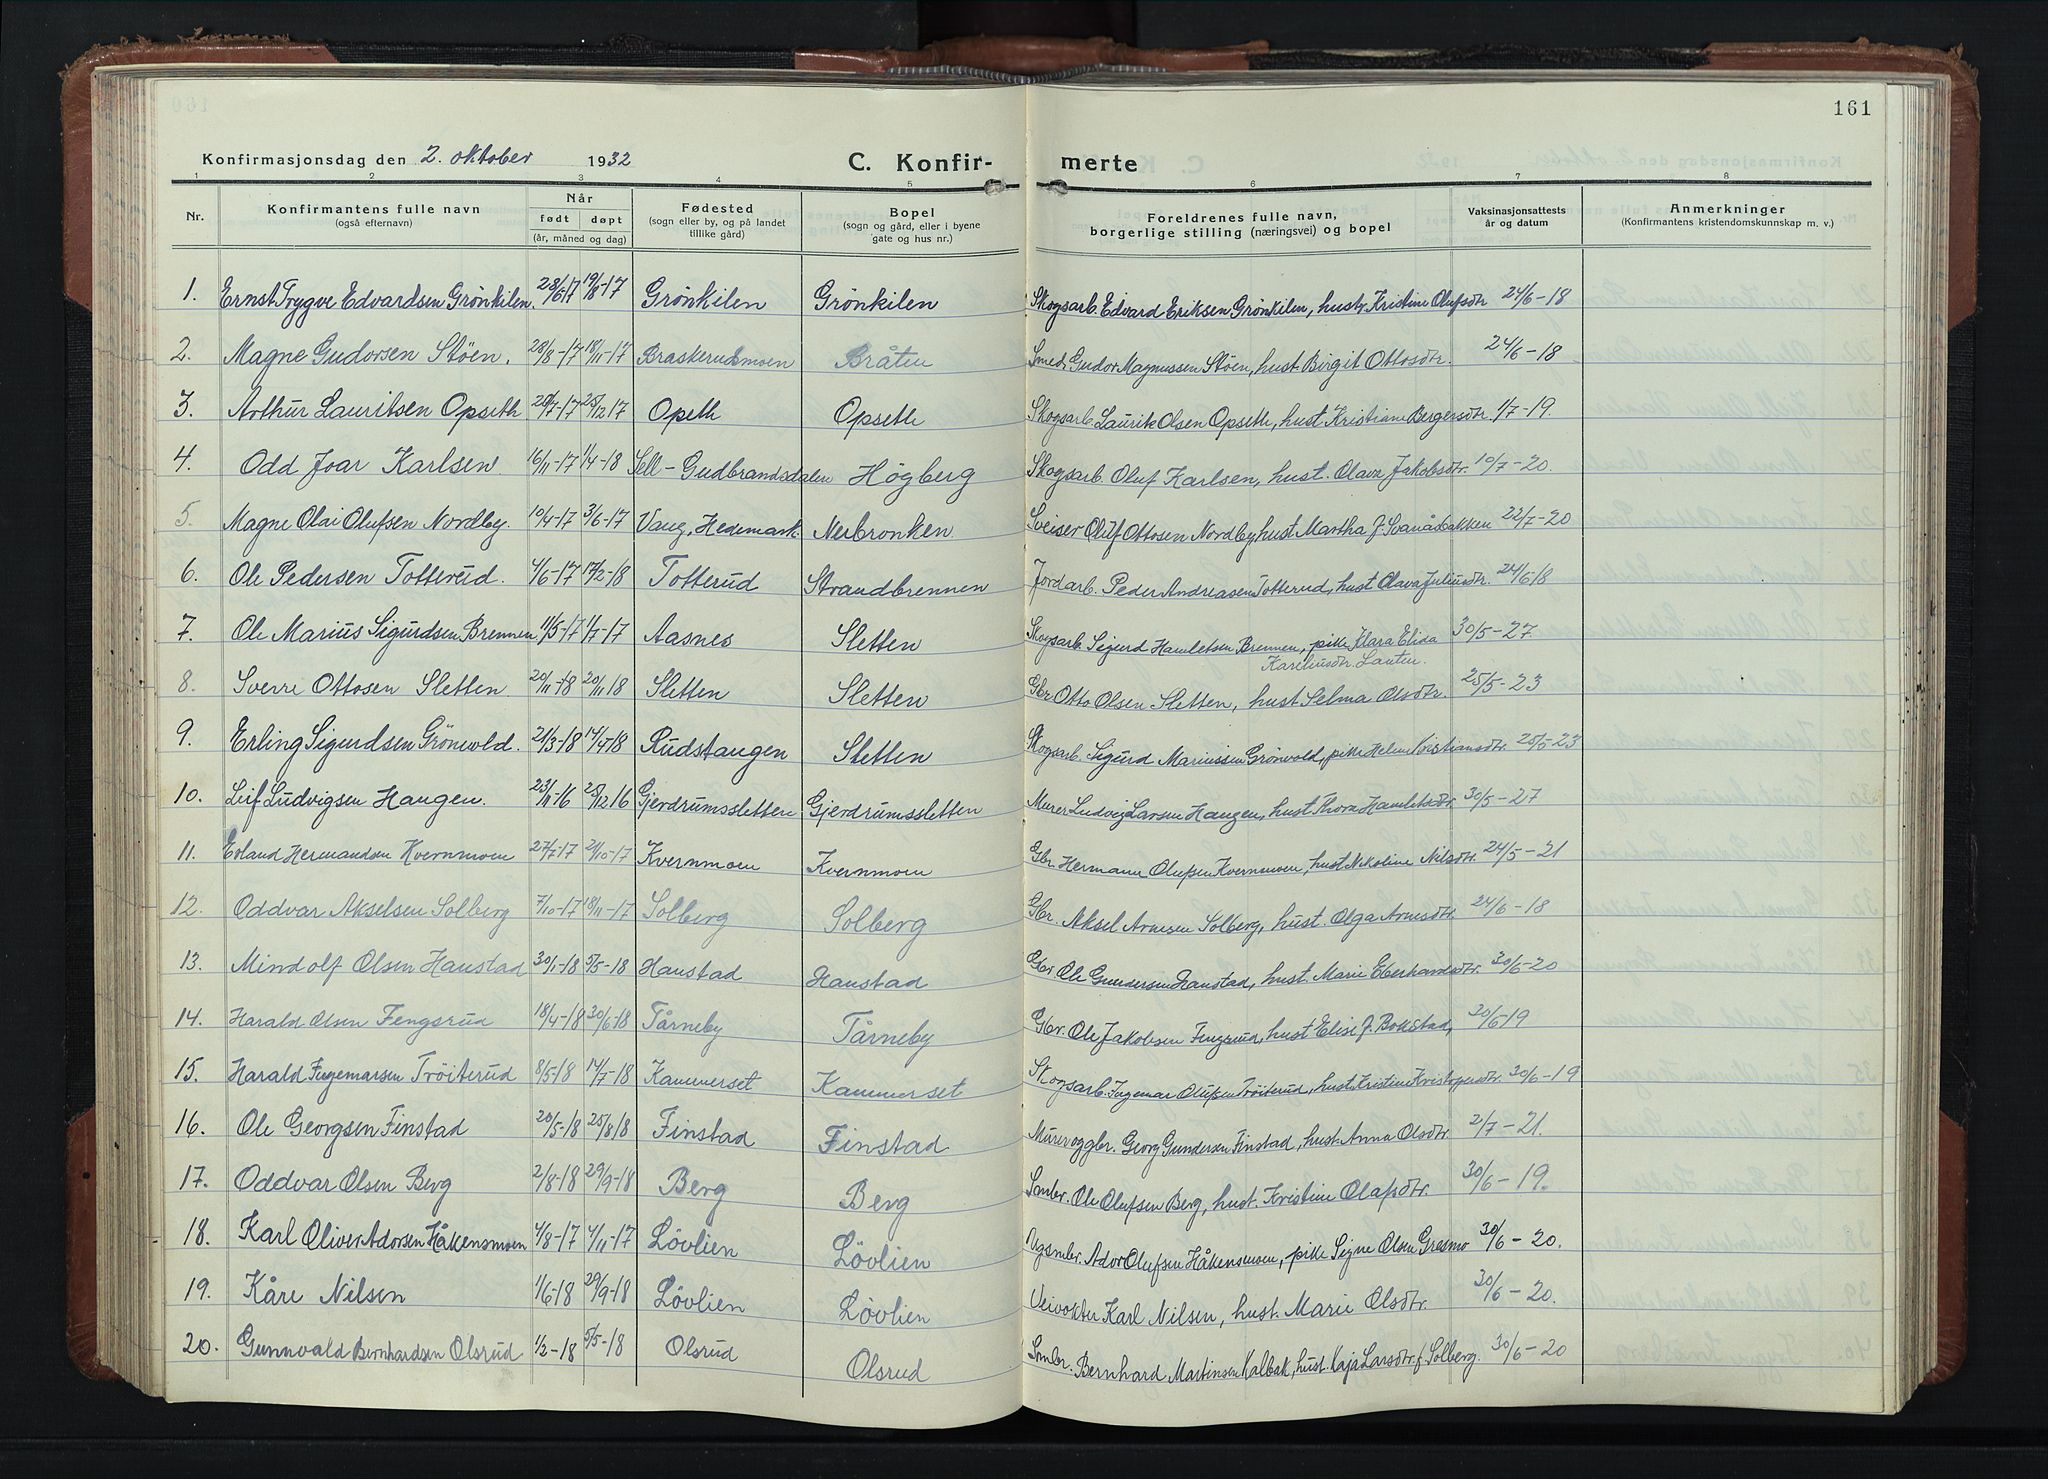 161
Konfirmasjonsdag den 2. oktober 1932 C. Konfir- merte
1 2 3 4 5 6 7 8
Nr. Konfirmantens fulle navn (også efternavn) Når født døpt (år, måned og dag) Fødested (sogn eller by, og på landet tillike gård) Bopel (sogn og gård, eller i byene gate og hus nr.) Foreldrenes fulle navn, borgerlige stilling (næringsvei) og bopel Vaksinasjonsattests år og datum Anmerkninger (Konfirmantens kristendomskunnskap m. v.)
1. Ernst Trygve Edvardsen Grönkilen. 28/6 17 19/8-17 Grönkilen Grönkilen Skogsarb. Edvard Eriksen Grönkilen, hustr. Kristine Olufsdtr 24/6-18
2. Magne Gudorsen Stöen. 28/8-17 18/11-17 Braskerudsmoen Bråten Smed Gudor Magnussen Stöen, hust. Birgit Ottosdtr. 24/6-18
3. Arthur Lauritsen Opseth 28/7-17 25/12 17 Opseth Opseth Skogsarb. Laurits Olsen Opseth, hust Kristiane Bergersdtr 1/7-19.
4. Odd Joar Karlsen 16/11-17 1/4-18 Sell-Gudbrandsdalen Högberg Skogsarb. Oluf Karlsen, hust. Olava Jakobsdtr. 10/7-20.
5. Magne Olai Olufsen Nordby. 10/4-17 3/6-17 Vang, Hedemark. Nerbronken Sveiser Oluf Ottosen Nordby, hust Martha f. Svanåbakken 22/7-20
6. Ole Pedersen Totterud. 4/6-17 17/2-18 Totterud Strandbrennen Jordarb. Peder Andreasen Totterud, hust Olava Juliusdtr. 24/6-18
7. Ole Marius Sigurdsen Brennen 11/5-17 1/7-17 Aasnes Sletten Skogsarb. Sigurd Hamletsen Brennen, pike Klara Elida 30/5-27.
Kareliusdtr. Lauten.
8. Sverre Ottosen Sletten 20/11-18 20/11 18 Sletten Sletten Gbr Otto Olsen Sletten, hust Selma Olsdtr. 25/5-23
9. Erling Sigurdsen Grönvold. 21/3-18 14/4-18 Rudstaugen Sletten Skogsarb. Sigurd Mariussen Grönvold, pike Helene Kristiansdtr. 25/5-23
10. Leif Ludvigsen Haugen. 23/11-16 25/12 16 Gjerdrumssletten Gjerdrumssletten Murer Ludvig Larsen Haugen, hust Thora Hamletsdtr. 30/5-27
11. Erland Hermandsen Kvernmoen 27/7-17 21/10-17 Kvernmoen Kvernmoen Gbr. Hermann Olufsen Kvernmoen, hust Nikoline Nilsdtr. 24/5-21
12. Oddvar Akselsen Solberg 7/10-17 18/11-17 Solberg Solberg Gbr. Aksel Arnesen Solberg, hust. Olga Arnesdtr. 24/6-18
13. Mindolf Olsen Haustad 30/1-18 5/5-18 Haustad Haustad Gbr Ole Gundersen Haustad, hust. Marie Eberhardsdtr. 30/6-20
14. Harald Olsen Fengsrud 18/4-18 30/6-18 Tårneby Tårneby Gbr. Ole Jakobsen Fengsrud, hust Elise f. Bokstad, 20/6-19
15. Harald Ingemarsen Tröiterud 8/5-18 14/7-18 Kammerset Kammerset Skogsarb. Ingemar Olufsen Tröiterud, hust. Kristine Kristoffersdtr. 30/6-19
16. Ole Georgsen Finstad 20/5-18 25/8 18 Finstad Finstad Murer og gbr. Georg Gundersen Finstad, hust. Anna Olsdtr. 2/7-21.
17. Oddvar Olsen Berg 2/8-18 29/9-18 Berg Berg Smbr. Ole Olufsen Berg, hust. Kristine Olafsdtr. 30/6-19.
18. Karl Oliver Adorsen Håkensmoen 4/8-17 4/11-17 Lövlien Lövlien Ugsmbr. Ador Olufsen Håkensmoen, pike Signe Olsen Gresmo 30/6-20.
19. Kåre Nilsen 1/6-18 29/9-18 Lövlien Lövlien Veivokter Karl Nilsen, hust. Marie Olsdtr. 30/6-20.
20. Gunnvald Bernhardsen Olsrud 1/2-18 5/5-18 Olsrud Olsrud Smbr. Bernhard Martinsen Kalbak, hust. Kaja Larsdtr. f. Solberg. 30/6-20